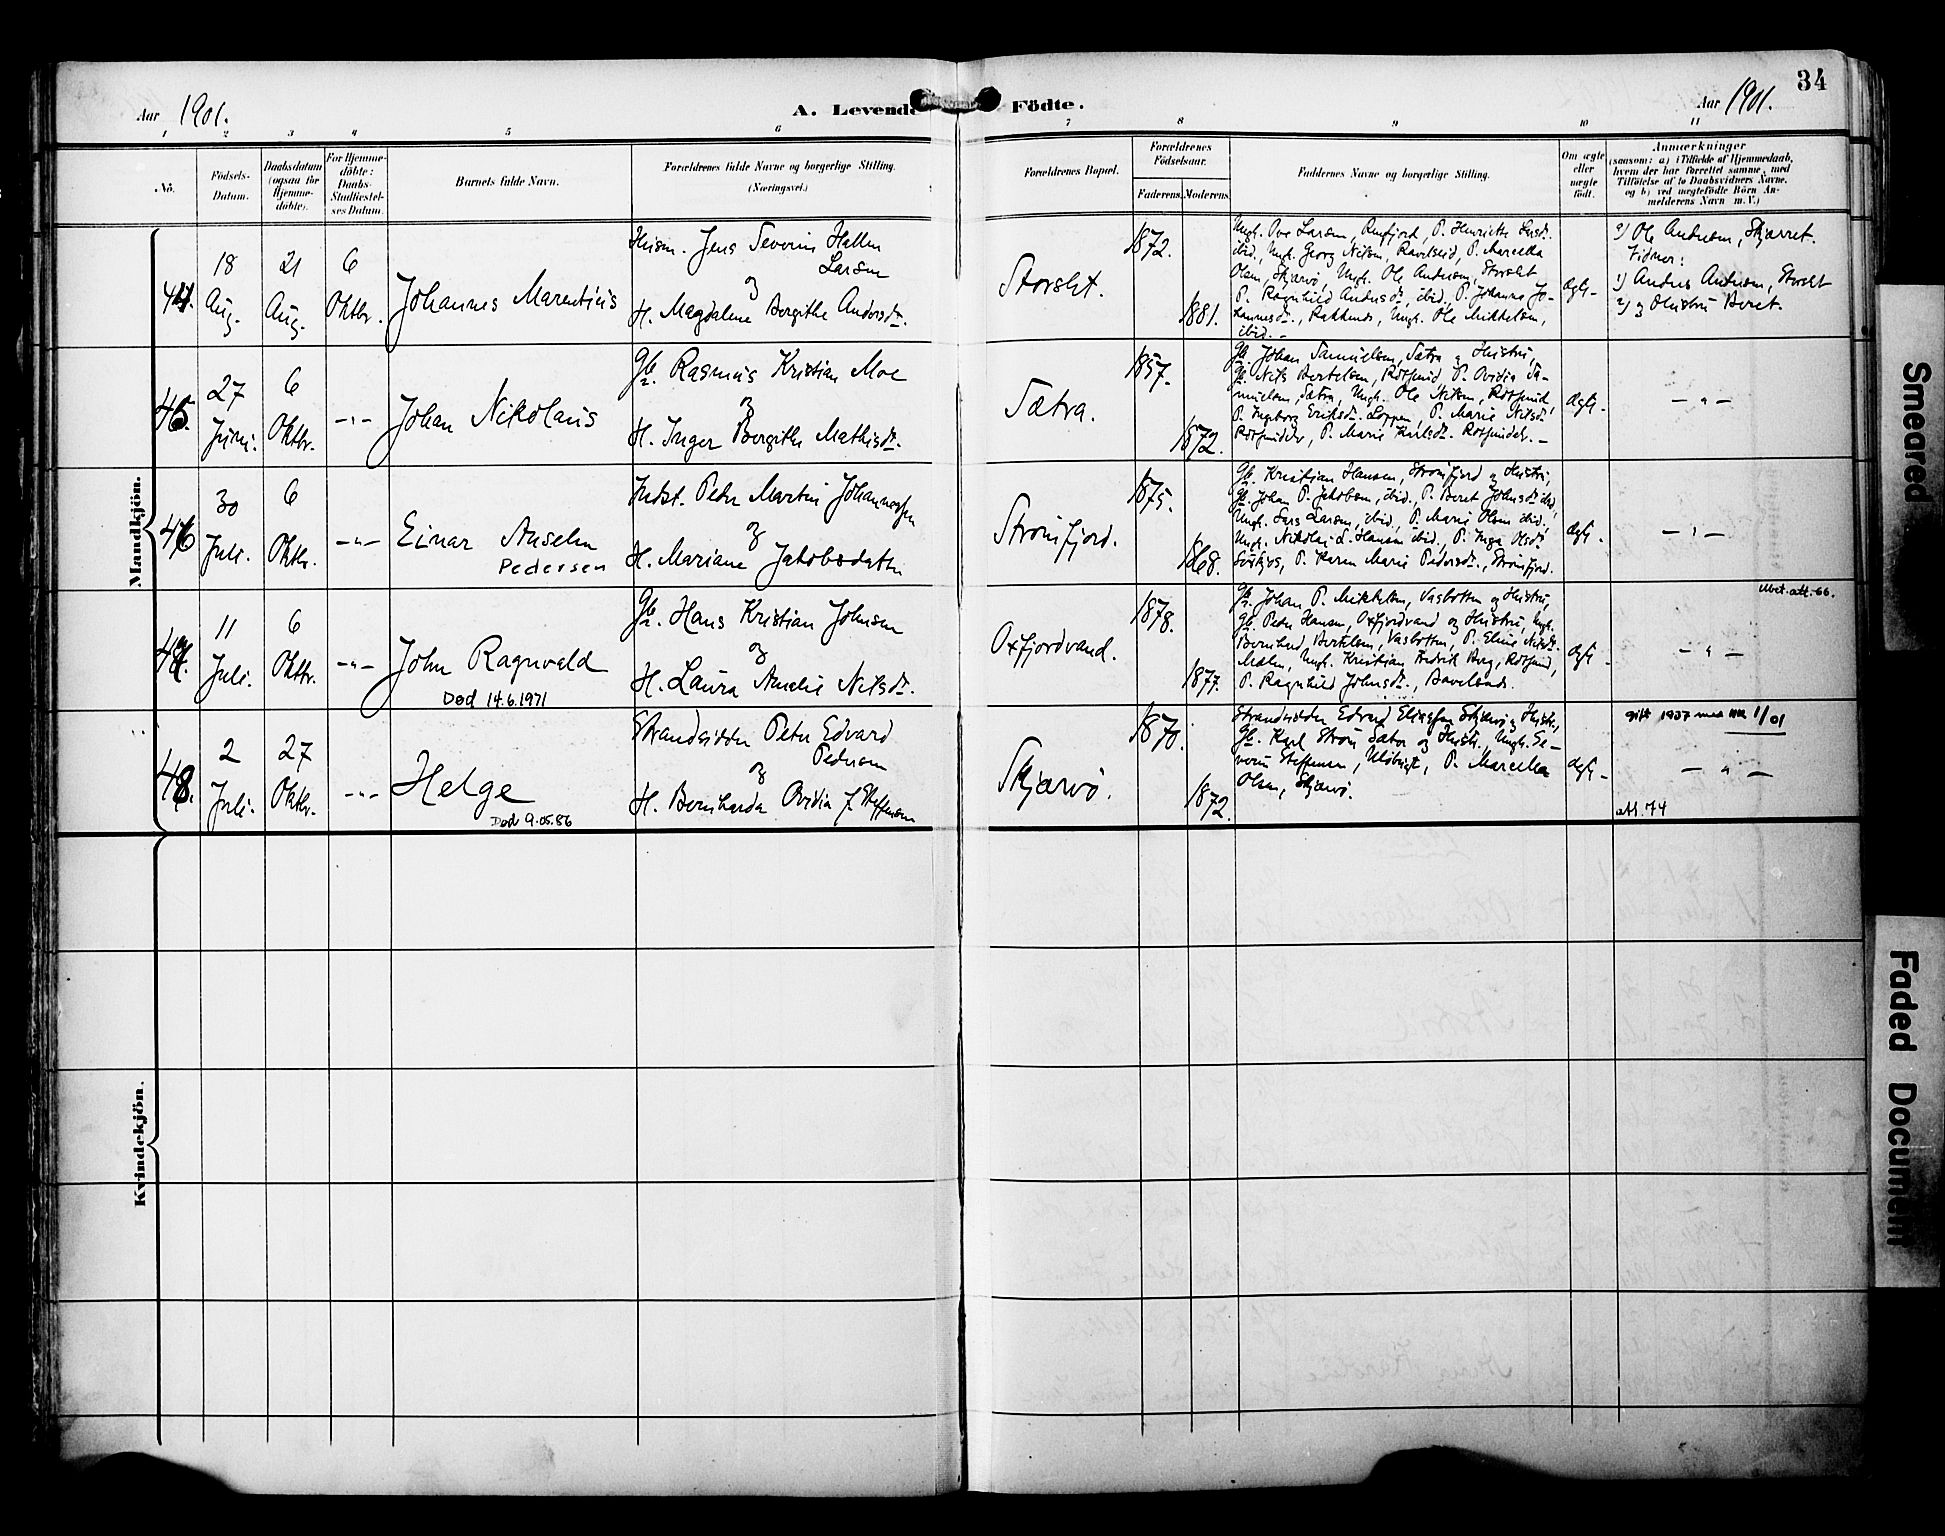 34
Aar 1901.
A. Levende Födte.
Aar 1901.
1 2 3 4 5 6 7 8 9 10 11
No.
Födsels-Datum.
Daabsdatum (ogsaa for Hjemme-döbte).
For Hjemme-döbte: Daabs-Stadfæstel-ses Datum.
Barnets fulde Navn.
Forældrenes fulde Navne og borgerlige Stilling.
(Næringsvei.)
Forældrenes Bopæl.
Forældrenes Födselsaar.
Faderens. Moderens.
Faddernes Navne og borgerlige Stilling.
Om ægte eller uægte födt.
Anmærkninger
(saasom: a) i Tilfælde af Hjemmedaab,
hvem der har forrettet samme, med
Tilföielse af to Daabsvidners Navne,
og b) ved uægtefödte Börn An-
melderens Navn m.V.)
Mandkjön.
44.
18 Aug.
21 Aug.
6 Oktbr.
Johannes Marentius
Husm. Jens Severin Hallen
Larsen
og
H. Magdalene Bergithe Andersdtr.
Storslet.
1872.
1881.
Ungk. Ove Larsen,
ibid., Ungk. Georg Nilsen, Ravelseid, P. Marcella
Olsen, Skjærvö, Ungk. Ole Andersen, Storslet
P. Ragnhild Andersdr., ibid., P. Johanna Jo-
hannesdr., Ungk. Ole Mikkelsen,
ibid. -
ægte -
Ole Andersen,
Vidner:
1) Anders Andersen, Storslet
2) og Hustru Beret.
45.
27 Juni.
6 Oktbr.
- " -
Johan Nikolaus
Gbr. Rasmus Kristian Moe
og
H. Inger Bergithe Mathisdtr.
Sætra.
1857.
1872.
Gbr. Johan Samuelsen, Sætra og Hustru,
Gbr. Nils Bertelsen, Rotsund, P. Ovidia Sa-
muelsen, Sætra, Ungk. Ole Nilsen, Rotsund,
P. Ingeborg Eriksdr. Loppen, P. Marie Nilsdr.
P. Marie Karlsdr.
ægte -
- " -
46
30 Juli.
6 Oktbr.
- " -
Einar Anselm
Pedersen
Indst. Peder Martin Johannessen
og
H. Mariane Jakobsdatter
Strömfjord.
1875.
1868.
Gbr. Kristian Hansen, Strömfjord og Hustru,
Gbr. Johan P. Jakobsen, ibid., P. Beret Johnsdr. ibid,
Ungk. Lars Larsen, ibid., P. Marie Olsen ibid.,
Ungk. Nikolai L. Hansen ibid., P. Inga Olsdr.
P. Karen Marie Pedersdr., Strömfjord.
ægte -
- " -
47.
11 Juli.
6 Oktbr.
- " -
John Ragnvald
Død 14.6.1971
Gbr. Hans Kristian Johnsen
og
H. Laura Amalie Nilsdr.
Oxfjordvand.
1878.
1877.
Gbr. Johan P. Mikkelsen, Vasbotten og Hustru,
Gbr. Peder Hansen, Oxfjordvand og Hustru, Ungk.
Bernhard Bertelsen, Vasbotten, P. Eline Nilsdr.
Ungk. Kristian Fredrik Berg, Rotsund,
P. Ragnhild Johnsdr.,
ægte -
att. 66.
- " -
48.
2 Juli.
27 Oktbr.
- " -
Helge
Død 9.05.86
Strandsidder Peder Edvard
Pedersen
og
H. Bernharda Ovidia J. Steffensen
Skjærvö.
1870.
1872.
Strandsidder Edvard Eliassen Skjærvö og Hustru,
Gbr. Karl Ström Sætra og Hustr., Ungk. Se-
verin Steffensen, P. Marcella
Olsen, Skjærvö.
ægte -
gift 1937 med 1/01
- " -
att. 74
Kvindekjön.
Smeared
Faded Document